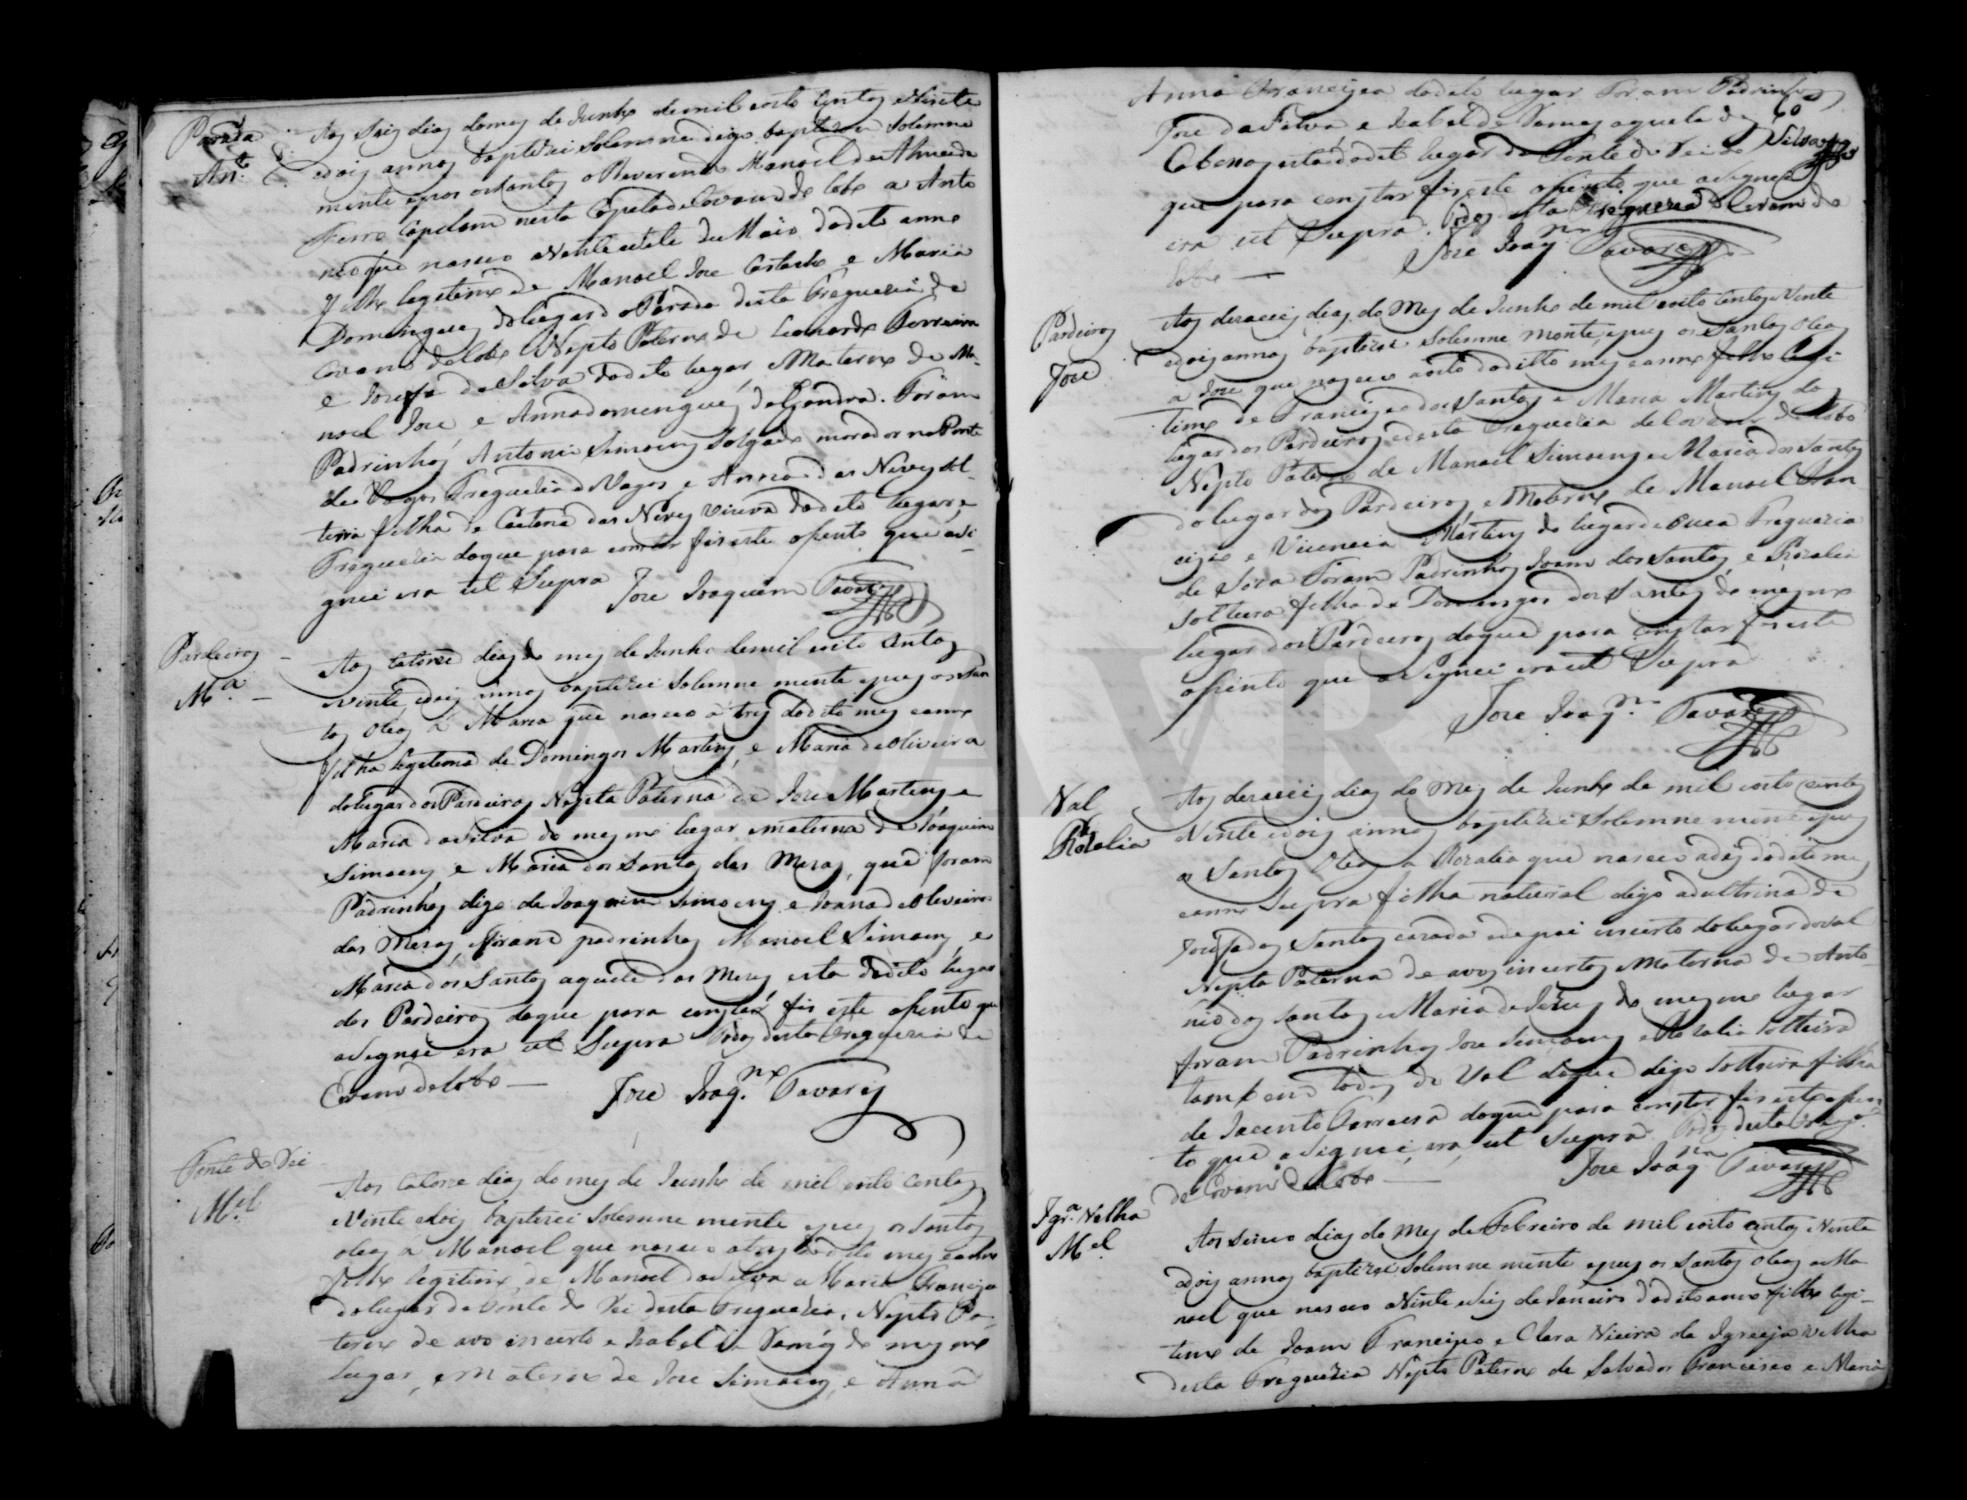 Parada
Ant.º
Aos Seis dias do mes de Junho de mil outo centos e Vinte
e dois annos baptizei Solemne digo baptizou Solemne
mente e pos os Santos o Reverendo Manoel de Almeida
Capelam nesta Capela de Covam do Lobo a Anto
nio que nasceo a Vinte e sete de Maio do dito anno
filho legitimo de Manoel Jose e Maria
Domingues do lugar da Parada desta Freguezia de
Covam do Lobo Nepto Paterno de Leonardo Ferreira
e Josefa da Silva do dito lugar Materno de Ma-
noel Jose e Anna domingues da Gandra. Foram
Padrinhos Antonio Simoens Salgado morador na Ponte
de Vagos Freguezia de Vagos, e Anna das Neves Sol-
teira filha de Caetana das Neves Viuva do dito lugar, e
Freguezia do que para constar fis este asento que asi-
gnei era ut Supra Jose Joaquim Tavares
Pardeiros
M.ª
Aos catorze dias do mes de Junho de mil outo centos
vinte e dois annos baptizei Solemne mente e pus os San
tos Oleos a Maria que nasceo a tres do dito mes e anno
filha legitima de Domingos Martins, e Maria de Oliveira
do lugar dos Pardeiros Nepta Paterna de Jose Martins e
Maria da Silva do mesmo lugar e materna de Joaquim
Simoens, e Maria dos Santos das Mesas, que foram
Padrinhos digo de Joaquim Simoens e Joana de Oliveira
das Mesas, foram padrinhos Manoel Simoens, e
Maria dos Santos aquele das Mesas, esta do dito lugar
dos Pardeiros do que para constar fis este asento que
asignei era ut Supra todos desta Freguezia de
Covam do Lobo — Jose Joaq.m Tavares
Fonte do Vei
M.el
Aos Catorze dias do mes de Junho de mil outo centos
Vinte e dois baptizei Solemne mente e pus os Santos
oleos a Manoel que nasceo a tres do dito mes e anno
filho legitimo de Manoel da Silva e Maria Francisca
do lugar da Fonte do Vei desta Freguezia, Nepto Pa-
terno de avo incerto e Izabel de do mesmo
lugar, e Materno de Jose Simoens, e Anna
Anna Francisca do dito lugar Foram Padrinhos
60
Jose da Silva e Izabel de aquele de
Tavares
esta do dito lugar da Fonte do Vei do
que para constar fis este asento que asignei
era ut Supra. todos desta Freguezia de Covam do
Lobo — Jose Joaq.m Tavares
Pardeiros
Jose
Aos dezaceis dias do Mes de Junho de mil outo centos e Vinte
e dois annos baptizei Solemne mente, e pus os Santos Oleos
a Jose que nasceo a outo do ditto mes e anno filho legi
timo de Francisco dos Santos e Maria Martins do
lugar dos Pardeiros desta Freguezia de Covam do Lobo
Nepto Paterno de Manoel Simoens e Maria dos Santos
do lugar dos Pardeiros, e Materno de Manoel Fran
cisco e Vicencia Martins do lugar de Ouca Freguezia
de Soza Foram Padrinhos Joam dos Santos, e Rozalia
Solteira filha de Domingos dos Santos do mesmo
lugar dos Pardeiros do que para constar fis este
asento que asignei era ut Supra
Jose Joaq.m Tavares
Val
Rozalia
Aos dezaceis dias do Mes de Junho de mil outo centos
Vinte e dois annos baptizei Solemne mente e pus
os Santos Oleos a Rozalia que nasceo a dez do dito mes
e anno Supra filha natural digo adultrina de
Josefa dos Santos cazada e de pai incerto do lugar do Val
Nepta Paterna de avos incertos e Materna de Anto-
nio dos Santos e Maria de Jezus do mesmo lugar
foram Padrinhos Jose Simoens, e Rozalia Solteira
tambem todos do Val do que digo Solteira filha
de Jacinto Ferreira do que para constar fis este asen
to que asignei, era, ut Supra todos desta Freg.ª
de Covam do Lobo — Jose Joaq.m Tavares
Igr.ª Velha
M.el
Aos sinco dias do Mes de Febreiro de mil outo centos Vinte
e dois annos baptizei Solemne mente e pus os Santos Oleos a Ma
noel que nasceo a Vinte e seis de Janeiro do dito anno filho legi-
timo de Joam Francisco e Clara Vieira da Igreija Velha
desta Freguezia Nepto Paterno de Salvador Francisco e Maria